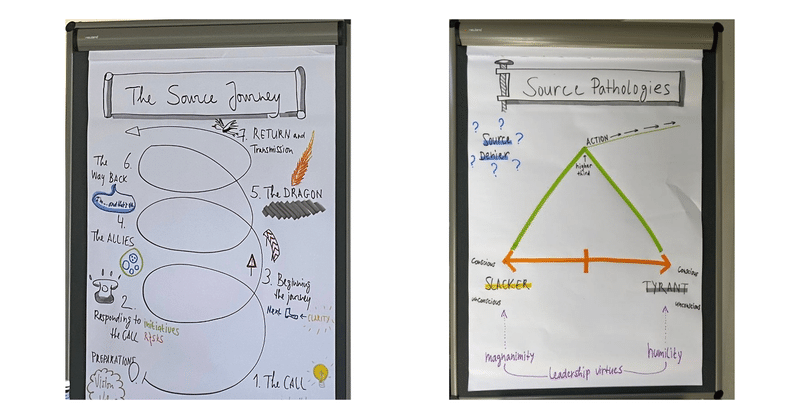 The Source Journey
7. RETURN and
Transmission
The 6.
Way BACK
5. The DRAGON
4.
The ALLIES
3. Beginning
the journey
Next
CLARITY
2.
Responding to initiatives
the CALL RISKS
PREPARATION
0
1. The CALL
Vision
Source Pathologies
? ? ? ? ? ?
Source
Denier
ACTION
higher
third
Conscious
SLACKER
unconscious
Conscious
TYRANT
unconscious
magnanimity
humility
leadership virtues